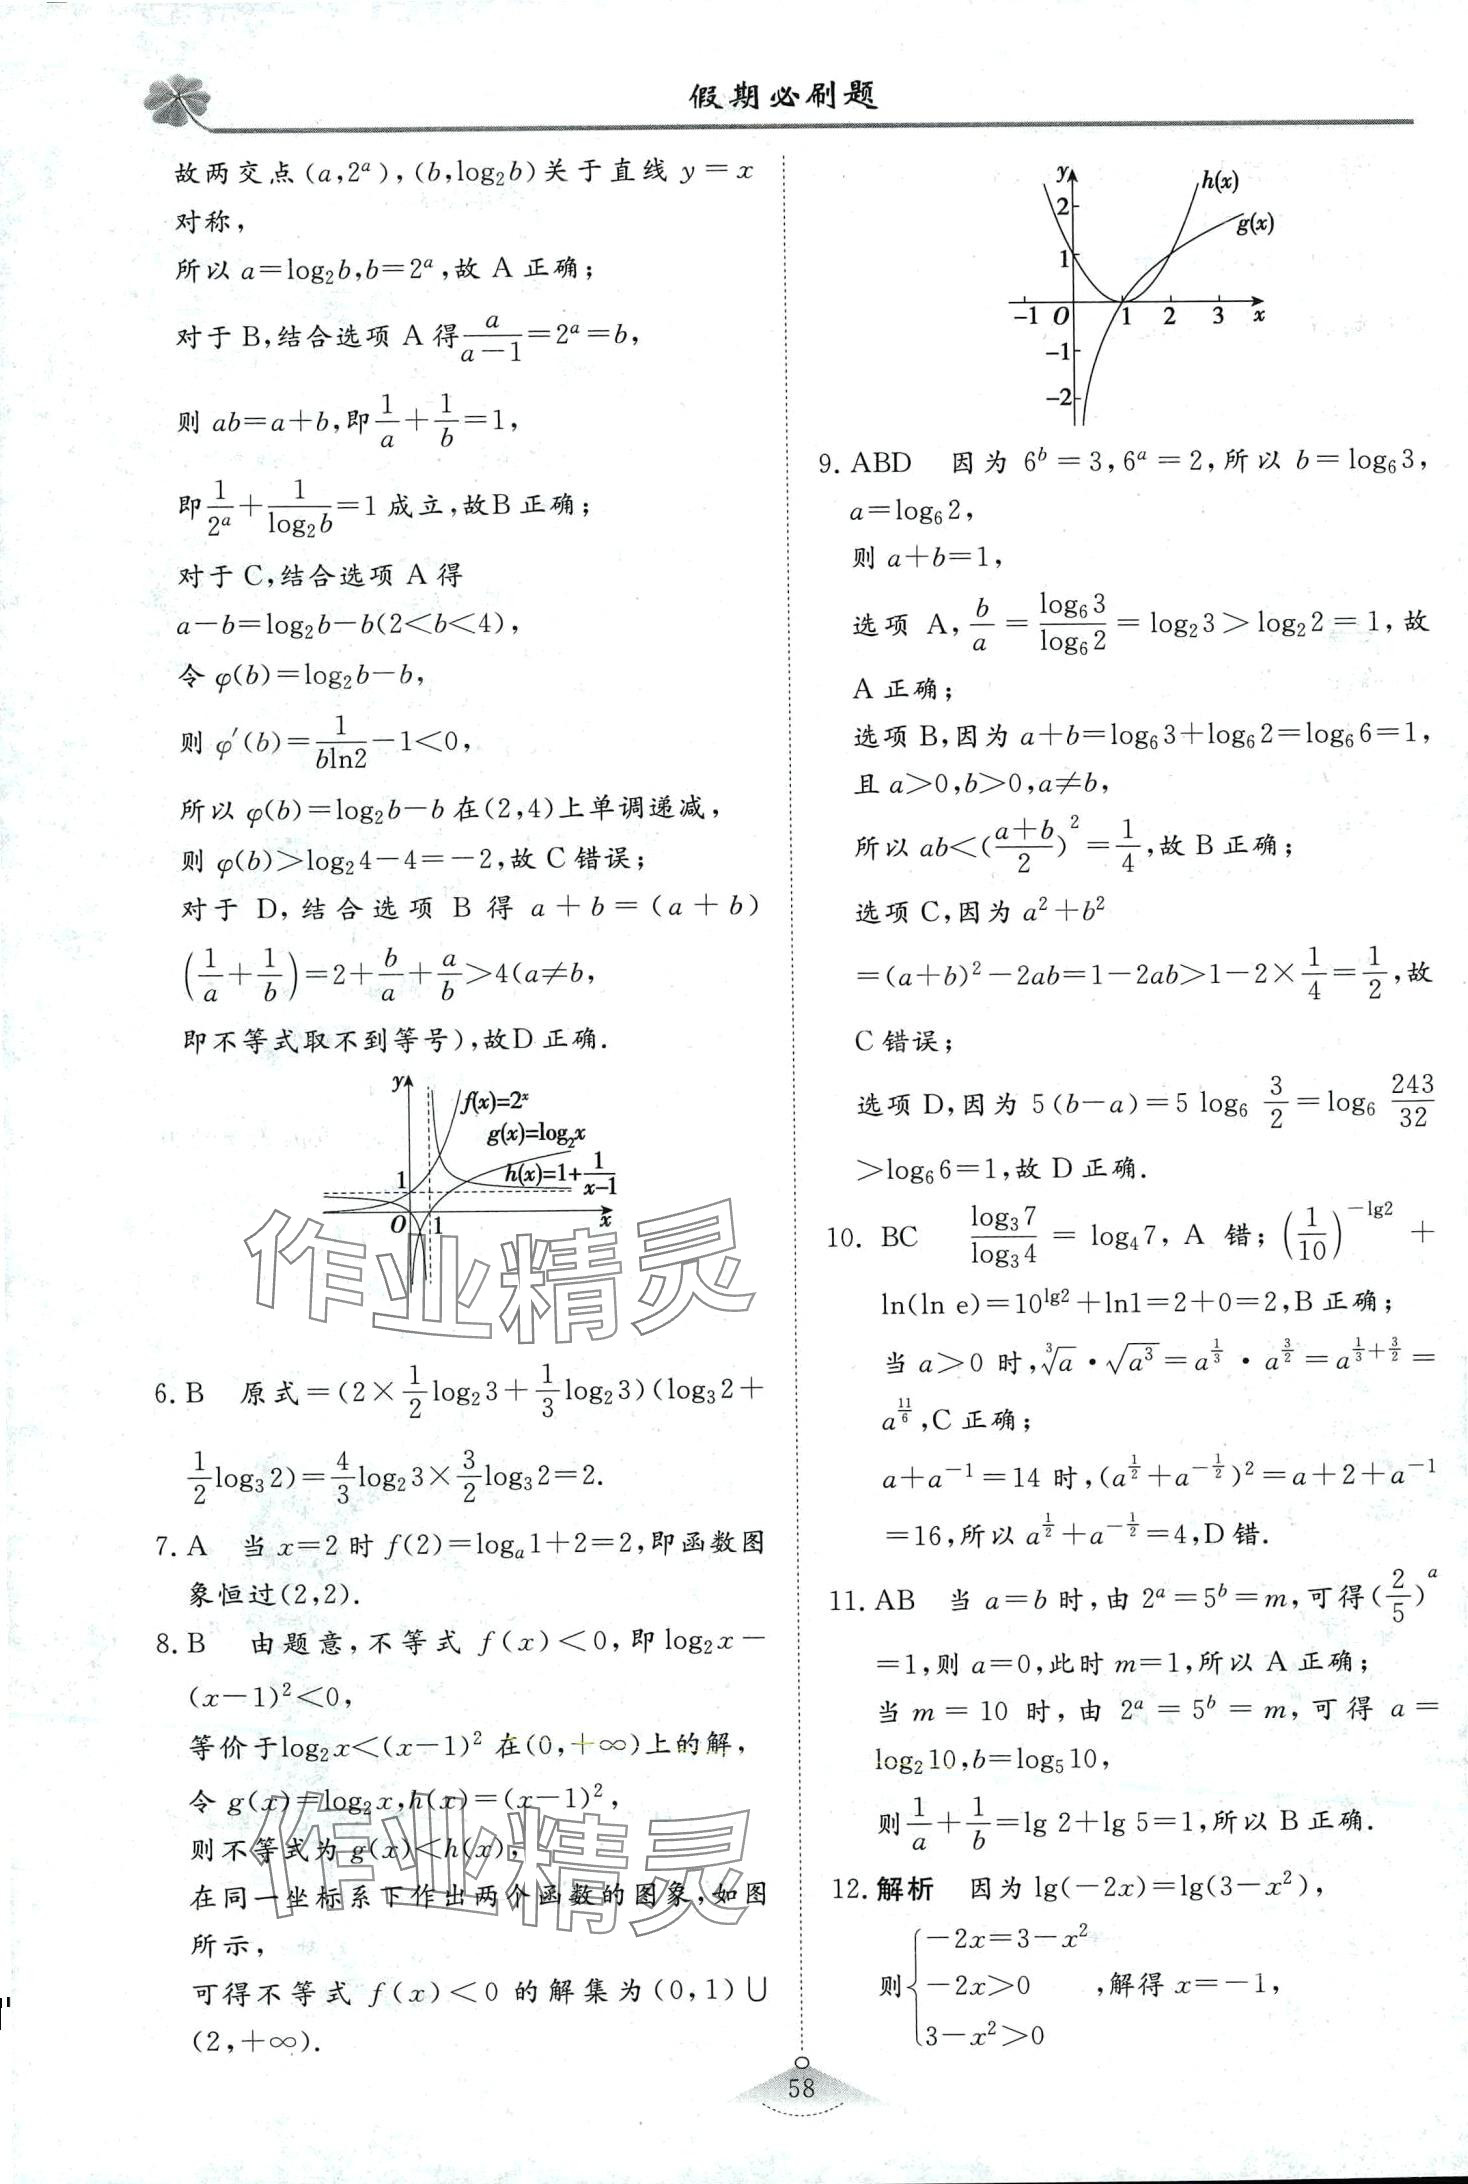 假期必刷题
故两交点(a,2ᵃ),(b,log₂b)关于直线 y=x
对称,
所以 a=log₂b,b=2ᵃ,故 A 正确;
对于 B,结合选项 A 得 a/(a-1)=2ᵃ=b,
则 ab=a+b,即 1/a+1/b=1,
即 1/2ᵃ+1/log₂b=1 成立,故B 正确;
对于 C,结合选项 A 得
a-b=log₂b-b(2<b<4),
令 φ(b)=log₂b-b,
则 φ′(b)=1/(bln2)-1<0,
所以 φ(b)=log₂b-b 在(2,4)上单调递减,
则 φ(b)>log₂4-4=-2,故 C 错误;
对于 D,结合选项 B 得 a+b=(a+b)
(1/a+1/b)=2+b/a+a/b>4(a≠b,
即不等式取不到等号),故D 正确.
y
f(x)=2ˣ
g(x)=log₂x
h(x)=1+1/(x-1)
1
O 1 x
6. B 原式=(2×1/2log₂3+1/3log₂3)(log₃2+
1/2log₃2)=4/3log₂3×3/2log₃2=2.
7. A 当 x=2 时 f(2)=logₐ1+2=2,即函数图
象恒过(2,2).
8. B 由题意,不等式 f(x)<0,即 log₂x-
(x-1)²<0,
等价于log₂x<(x-1)² 在(0,+∞)上的解,
令 g(x)=log₂x,h(x)=(x-1)²,
则不等式为 g(x)<h(x),
在同一坐标系下作出两个函数的图象,如图
所示,
可得不等式 f(x)<0 的解集为(0,1)∪
(2,+∞).
y
h(x)
g(x)
2
1
-1 O 1 2 3 x
-1
-2
9. ABD 因为 6ᵇ=3,6ᵃ=2,所以 b=log₆3,
a=log₆2,
则 a+b=1,
选项 A, b/a=log₆3/log₆2=log₂3>log₂2=1,故
A 正确;
选项 B,因为 a+b=log₆3+log₆2=log₆6=1,
且 a>0,b>0,a≠b,
所以 ab<((a+b)/2)²=1/4,故 B 正确;
选项 C,因为 a²+b²
=(a+b)²-2ab=1-2ab>1-2×1/4=1/2,故
C 错误;
选项 D,因为 5(b-a)=5 log₆ 3/2=log₆ 243/32
>log₆6=1,故 D 正确.
10. BC log₃7/log₃4=log₄7, A 错;(1/10)^(-lg2)+
ln(ln e)=10^(lg2)+ln1=2+0=2,B 正确;
当 a>0 时,³√a·√a³=a^(1/3)·a^(3/2)=a^(1/3+3/2)=
a^(11/6),C 正确;
a+a⁻¹=14 时,(a^(1/2)+a^(-1/2))²=a+2+a⁻¹
=16,所以 a^(1/2)+a^(-1/2)=4,D 错.
11. AB 当 a=b 时,由 2ᵃ=5ᵇ=m,可得(2/5)ᵃ
=1,则 a=0,此时 m=1,所以 A 正确;
当 m=10 时,由 2ᵃ=5ᵇ=m,可得 a=
log₂10,b=log₅10,
则1/a+1/b=lg 2+lg 5=1,所以 B 正确.
12. 解析 因为 lg(-2x)=lg(3-x²),
则{-2x=3-x²
-2x>0 ,解得 x=-1,
3-x²>0
58
作业精灵
作业精灵